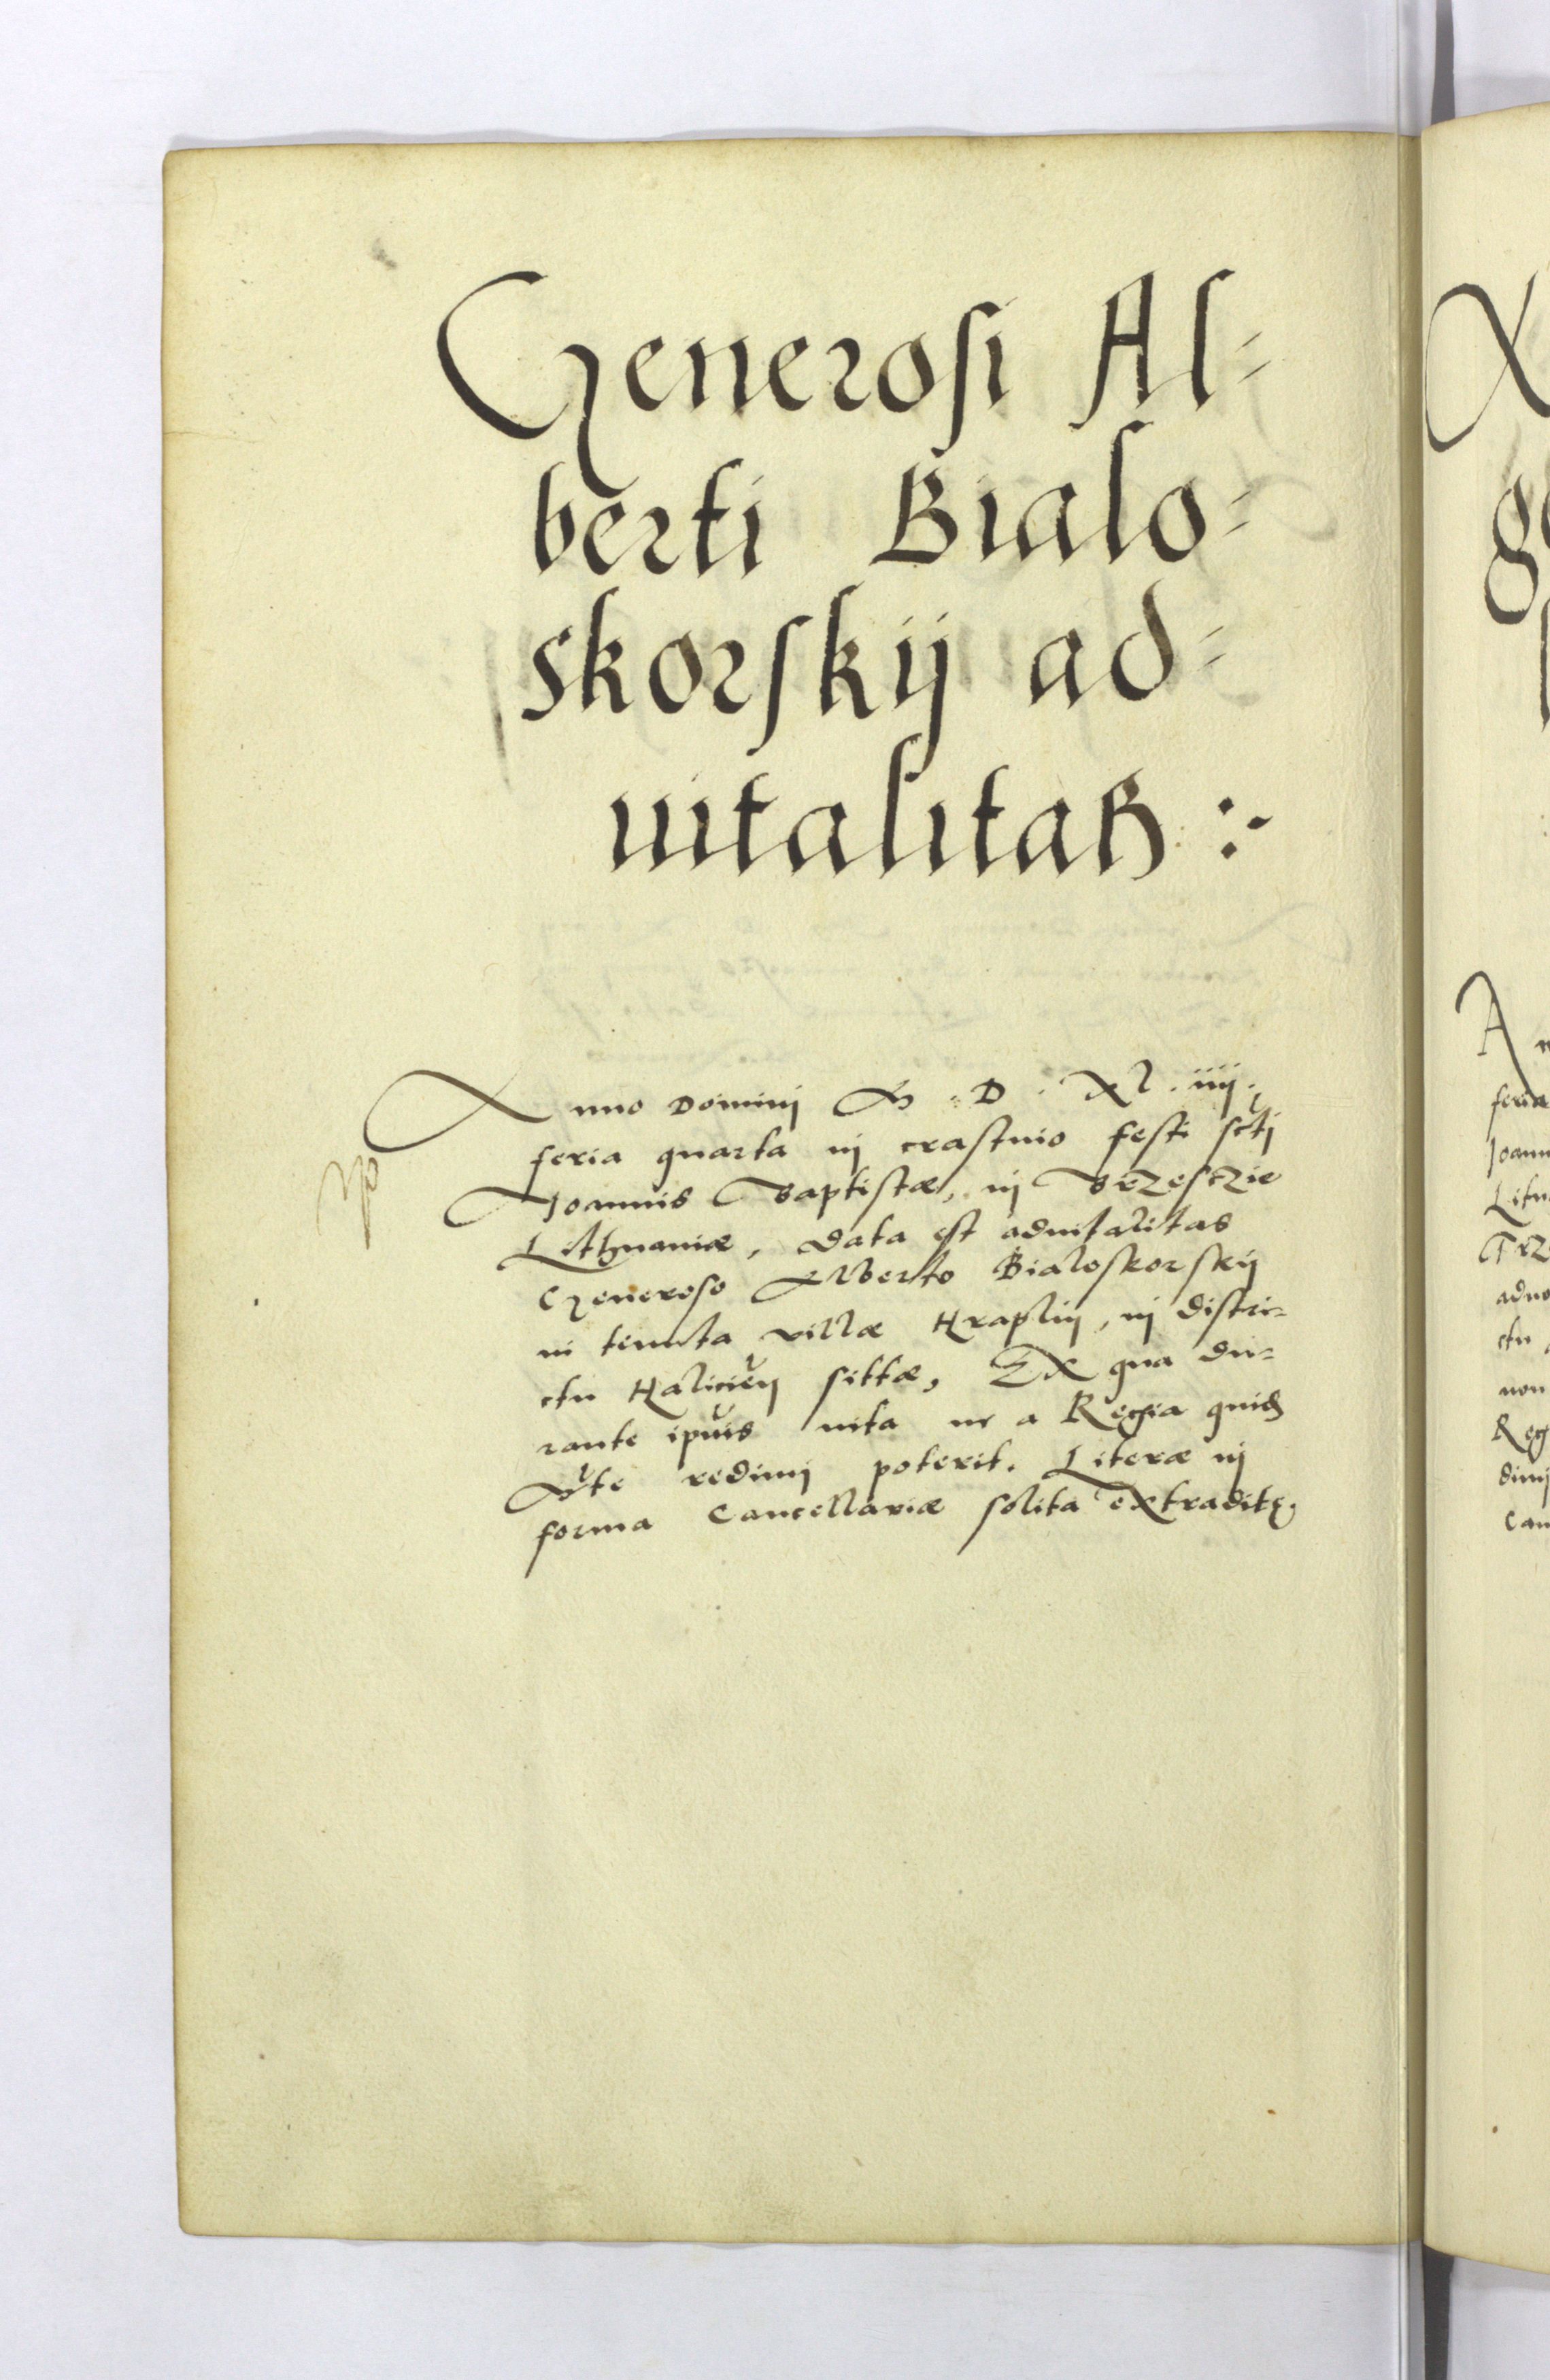 Generosi Al=
berti Bialo=
skorskij ad=
uitalitaß :·
Anno Domini M . D . Xl . iiij .
feria quarta in crastino festi scti
Joannis Baptistæ, in Brzesczie
Lithuaniæ, data est aduitalitas
Generoso Alberto Bialoskorskij
in tenuta villæ Hraplin, in distri=
ctu Halicieñ sittæ, Ex qua du=
rante ipius uita nec a Regia quid
Mte redimi poterit. Literæ in
forma Cancellariæ solita extraditę.
An
feria
Joann
Litu
Trz
aduo
ctu
non
Reg
dimj
Can